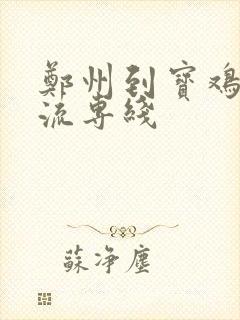 鄭州到寶鳮
流專綫
蘇净塵